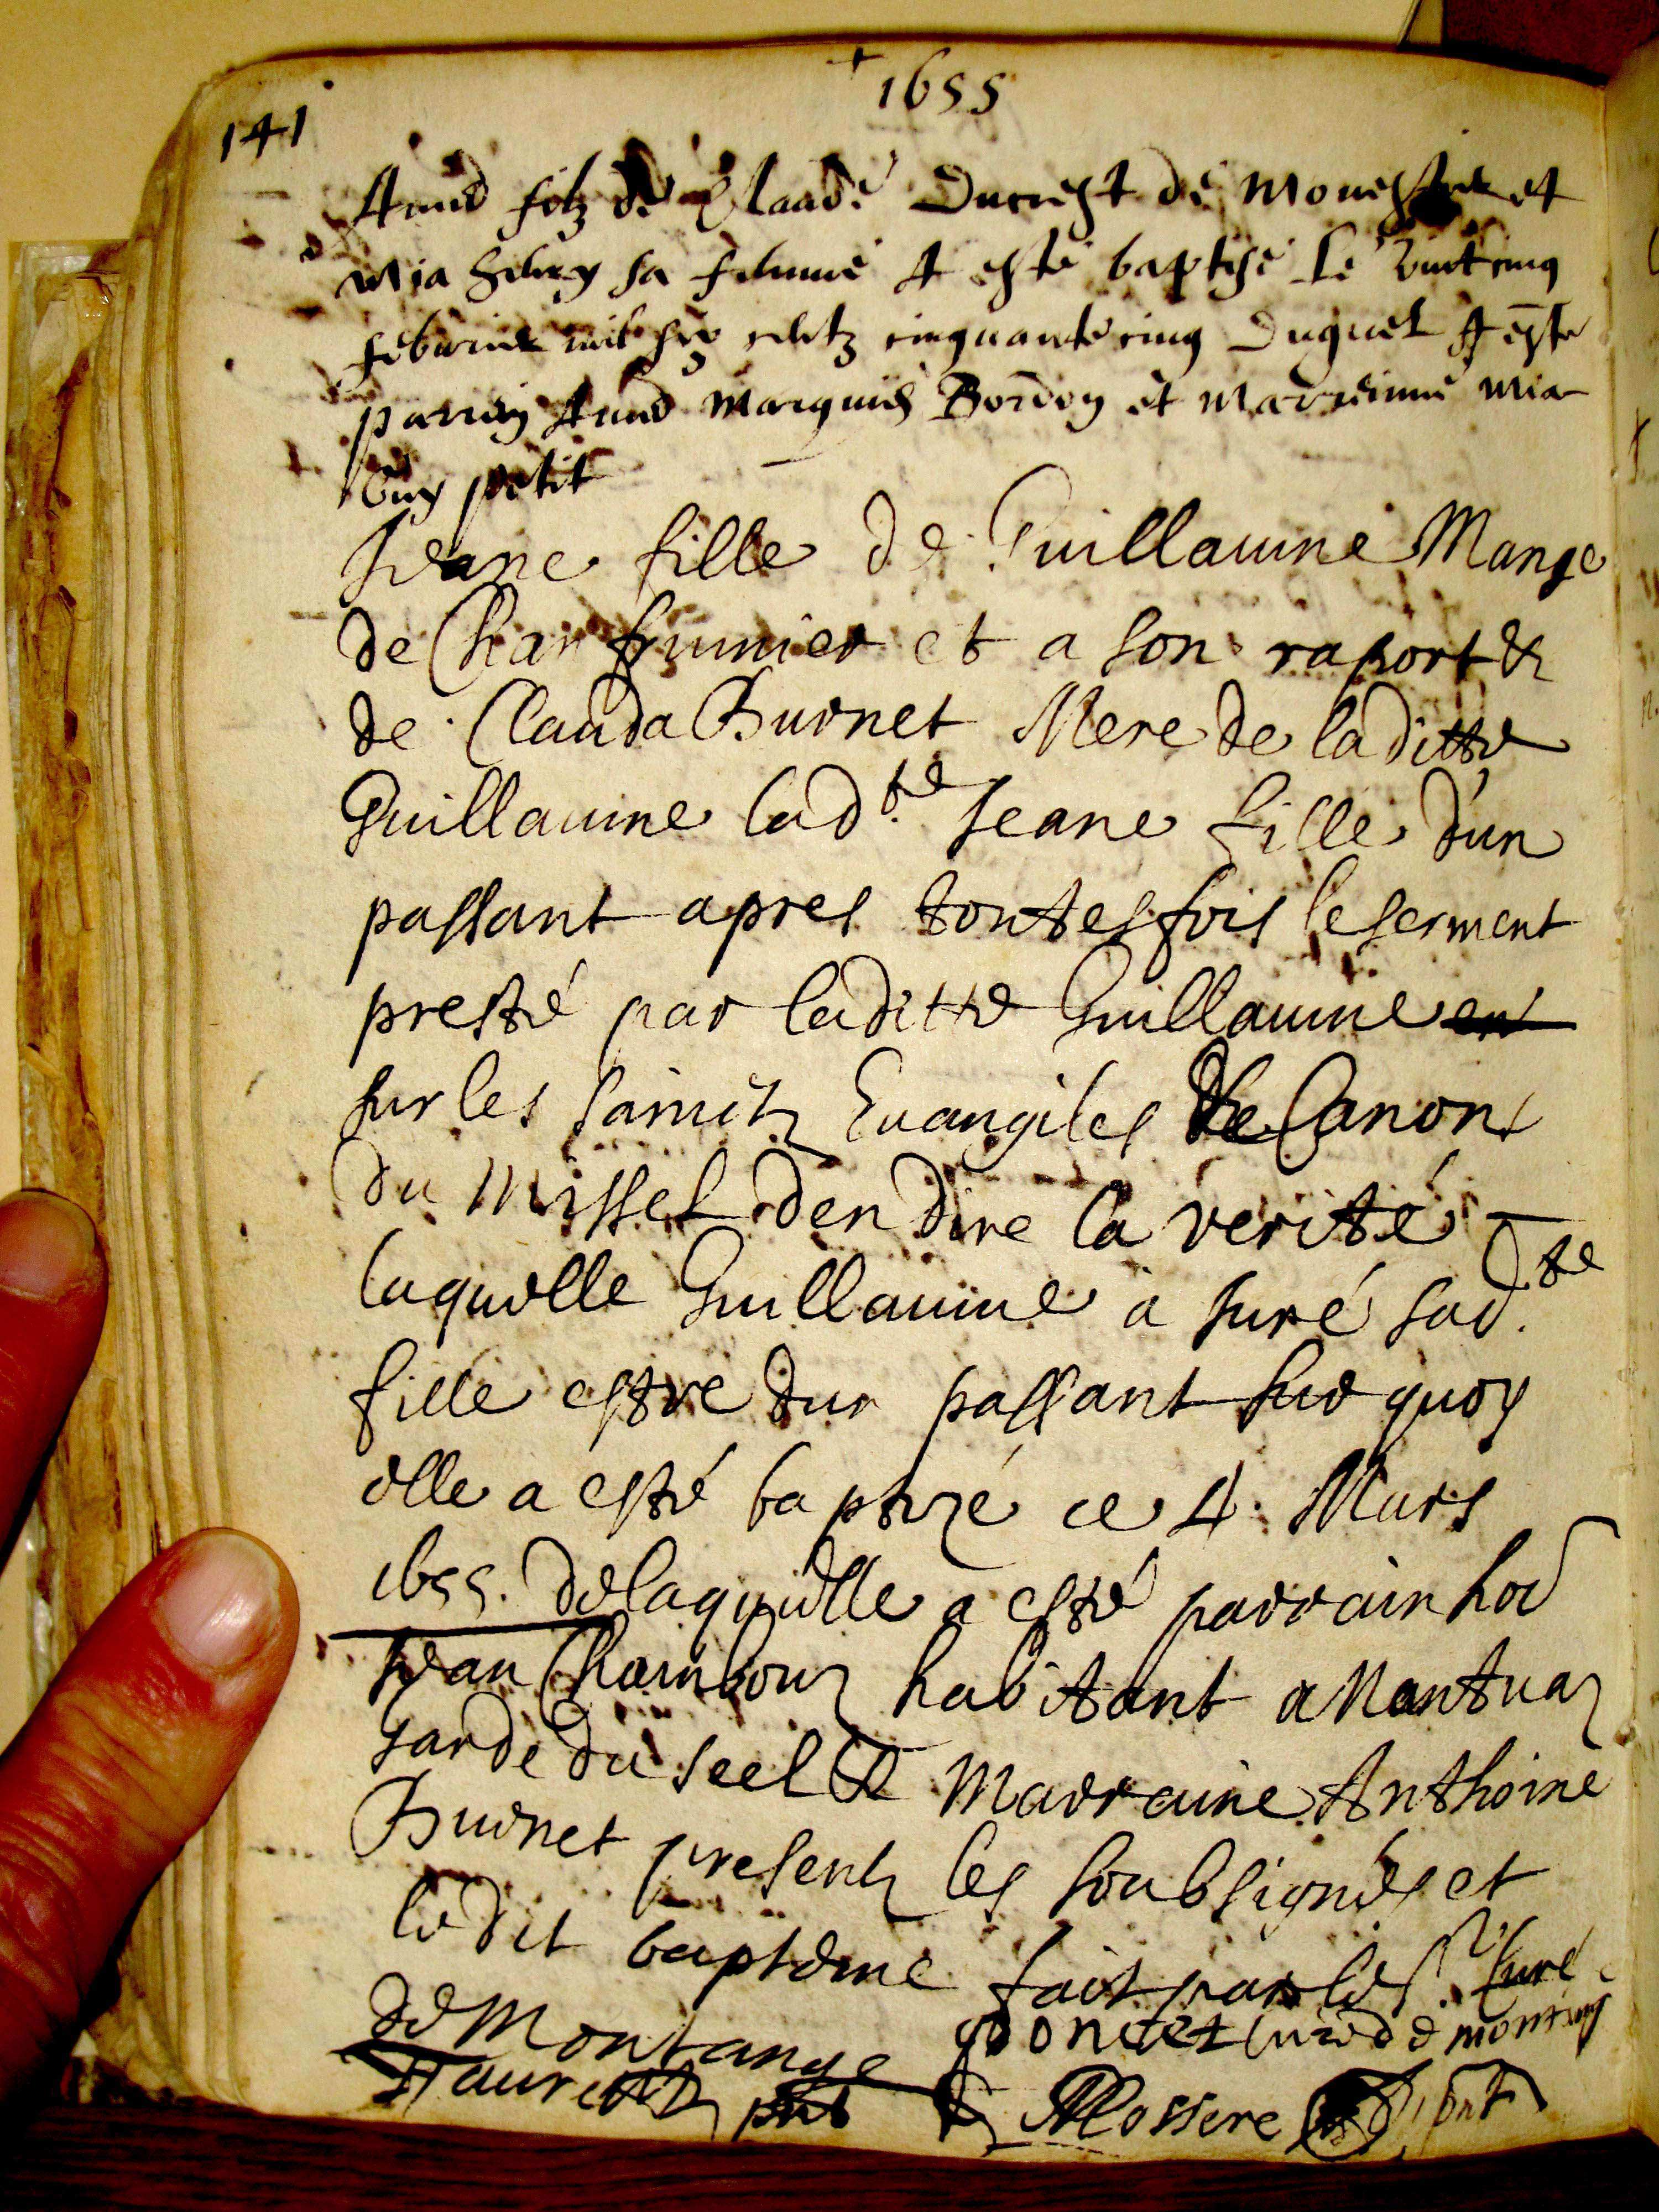 1655
141
filz de Claude Ducrest de et
Mia sa femme A esté baptisé le vint cinq
mil six centz cinquante cinq Duquel A esté
parrin Bordon et Marrinne Mia
petit
Jeane fille de Guillaume Mange
de et a son raport &
de Clauda Burnet Mere de laditte
Guillaume lad.te Jeane fille d'un
passant apres toutesfois le serment
presté par laditte Guillaume en
sur les sainctz Evangiles & le Canon
du Missel den dire la verité
laquelle Guillaume à juré sad.te
fille estre dun passant sur quoy
elle a esté baptizé ce 4. Mars
1655. De laquelle a esté parrain hon
Jean Chambouz habitant a Nantuaz
garde du seel & Marraine Anthoine
Burnet presentz les soubsignés et
ledit bapteme fait par le Sr. Curé
de Montange
Poncet Curé de montang
pnt Mossere pnt